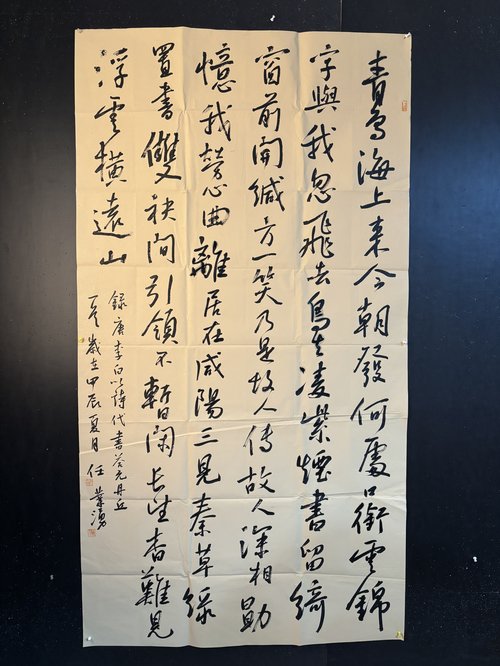 青鳥海上来今朝發何處口銜雲錦
字與我忽飛去鳥去凌紫煙書留綺
窗前開緘方一笑乃是故人傳故人深相勗
憶我勞心曲離居在咸陽三見秦草綠
置書雙袂間引領不暫閑長望杳難見
浮雲橫遠山
錄唐李白以詩代書答元丹丘
一首歲在甲辰夏月任業湧